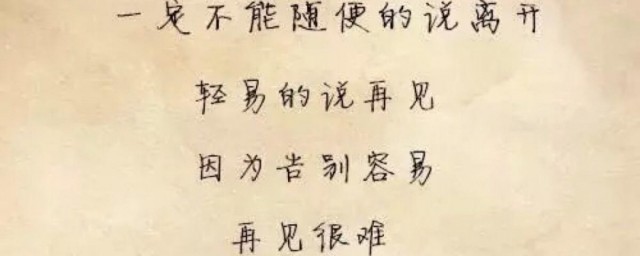 一定不能随便的说离开
轻易的说再见
因为告别容易
再见很难